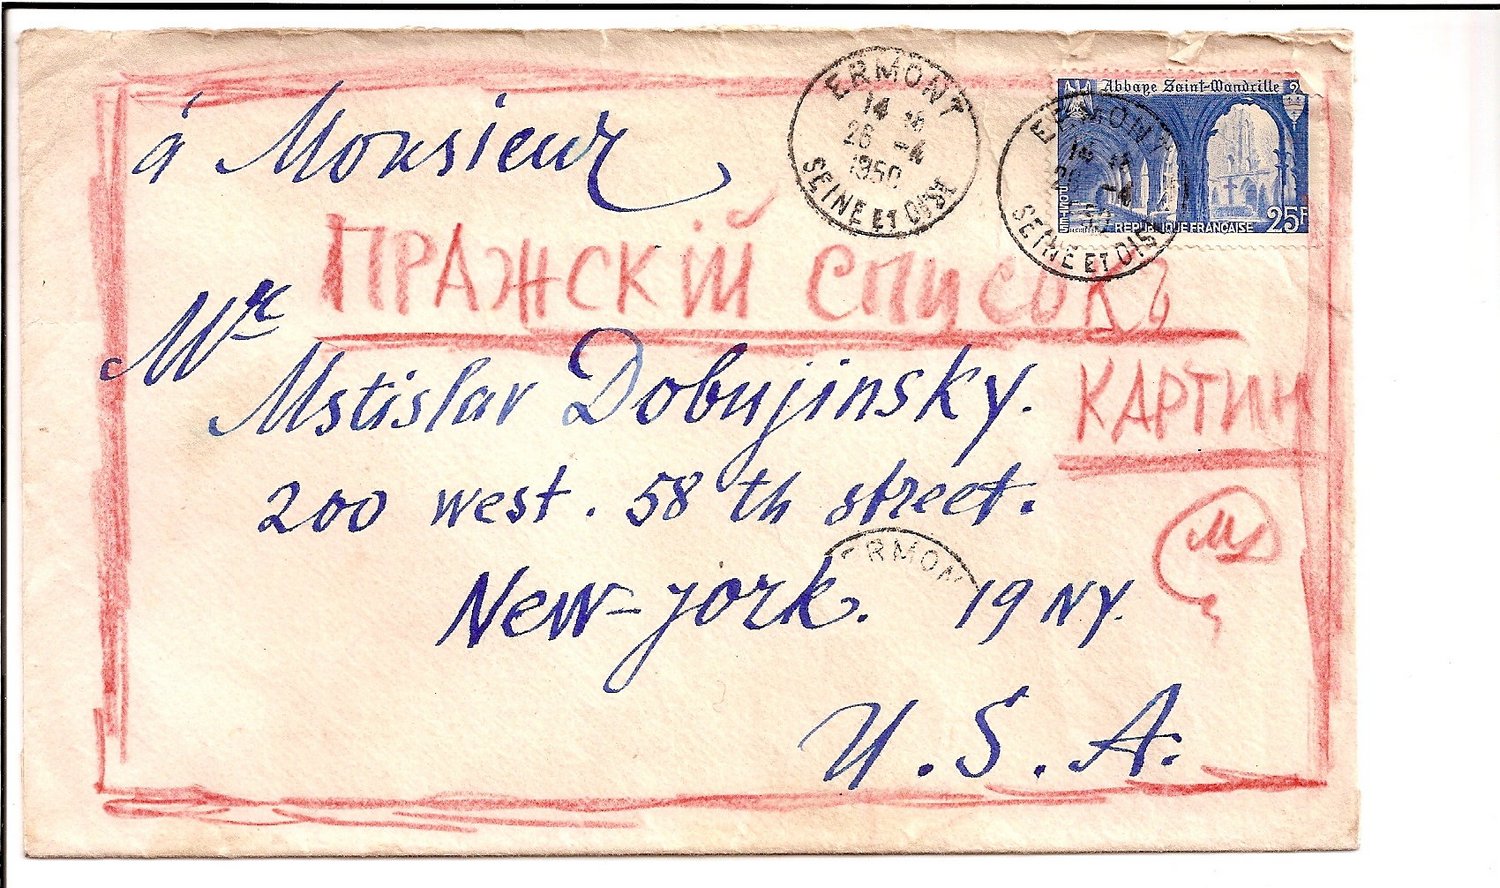 à Monsieur
ERMONT
14 H
26 -4
1950
SEINE ET OISE
Abbaye Saint-Wandrille
25F
REPUBLIQUE FRANÇAISE
ERMONT
SEINE ET OISE
ПРАЖСКІЙ СПИСОКЪ
КАРТИН
Mr
Mstislav Dobujinsky.
200 west. 58 th street.
ERMON
New-york. 19 NY.
U. S. A.